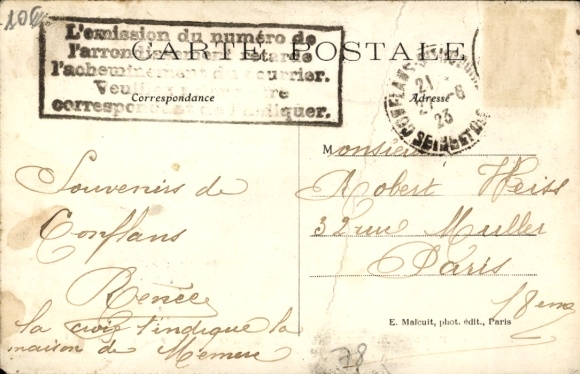 106
L'omission du numéro de
l'arrondissement retarde
l'acheminement du courrier.
Veuillez
correspondant de l'indiquer.
CARTE POSTALE
Correspondance
Adresse
CONFLANS
21
-8
23
SEINE ET OISE
Souvenirs de
Conflans
Renée
la croix t'indique la
maison de Memere
Monsieur
Robert Weiss
32 rue Muller
Paris
18eme
E. Malcuit, phot. édit., Paris
78